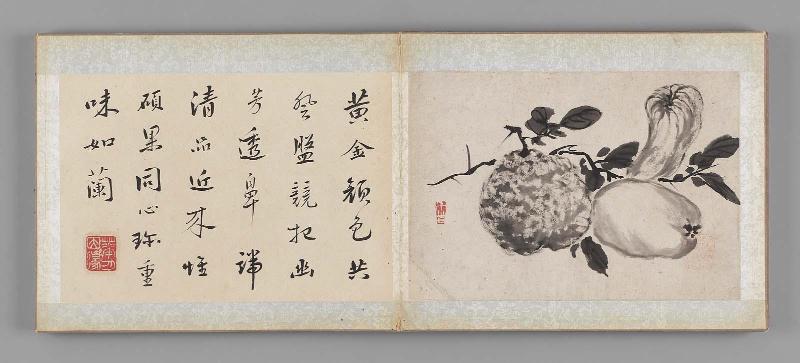 黃金顏色共
登盤競挹幽
芳透鼻端
清品近來惟
碩果同心珍重
味如蘭